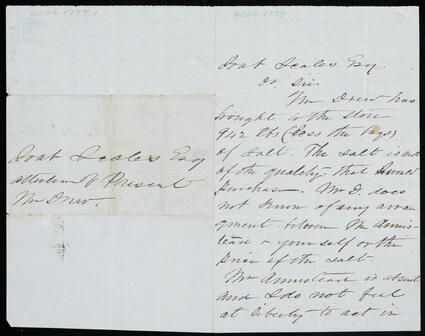 4026.1777.1
4026.1777
Joab Scales Esq
attention of Present
Mr Drew
Joab Scales Esq.
Dr. Sir
Mr Drew has
brought to the store
942 lbs (less the bags)
of salt. The salt is not
of the quality that
purchase. Mr D. does
not know of any arran
gement between Mr Armis-
tead & yourself or the
price of the salt.
Mr Armistead is absent
and I do not feel
at liberty to act in